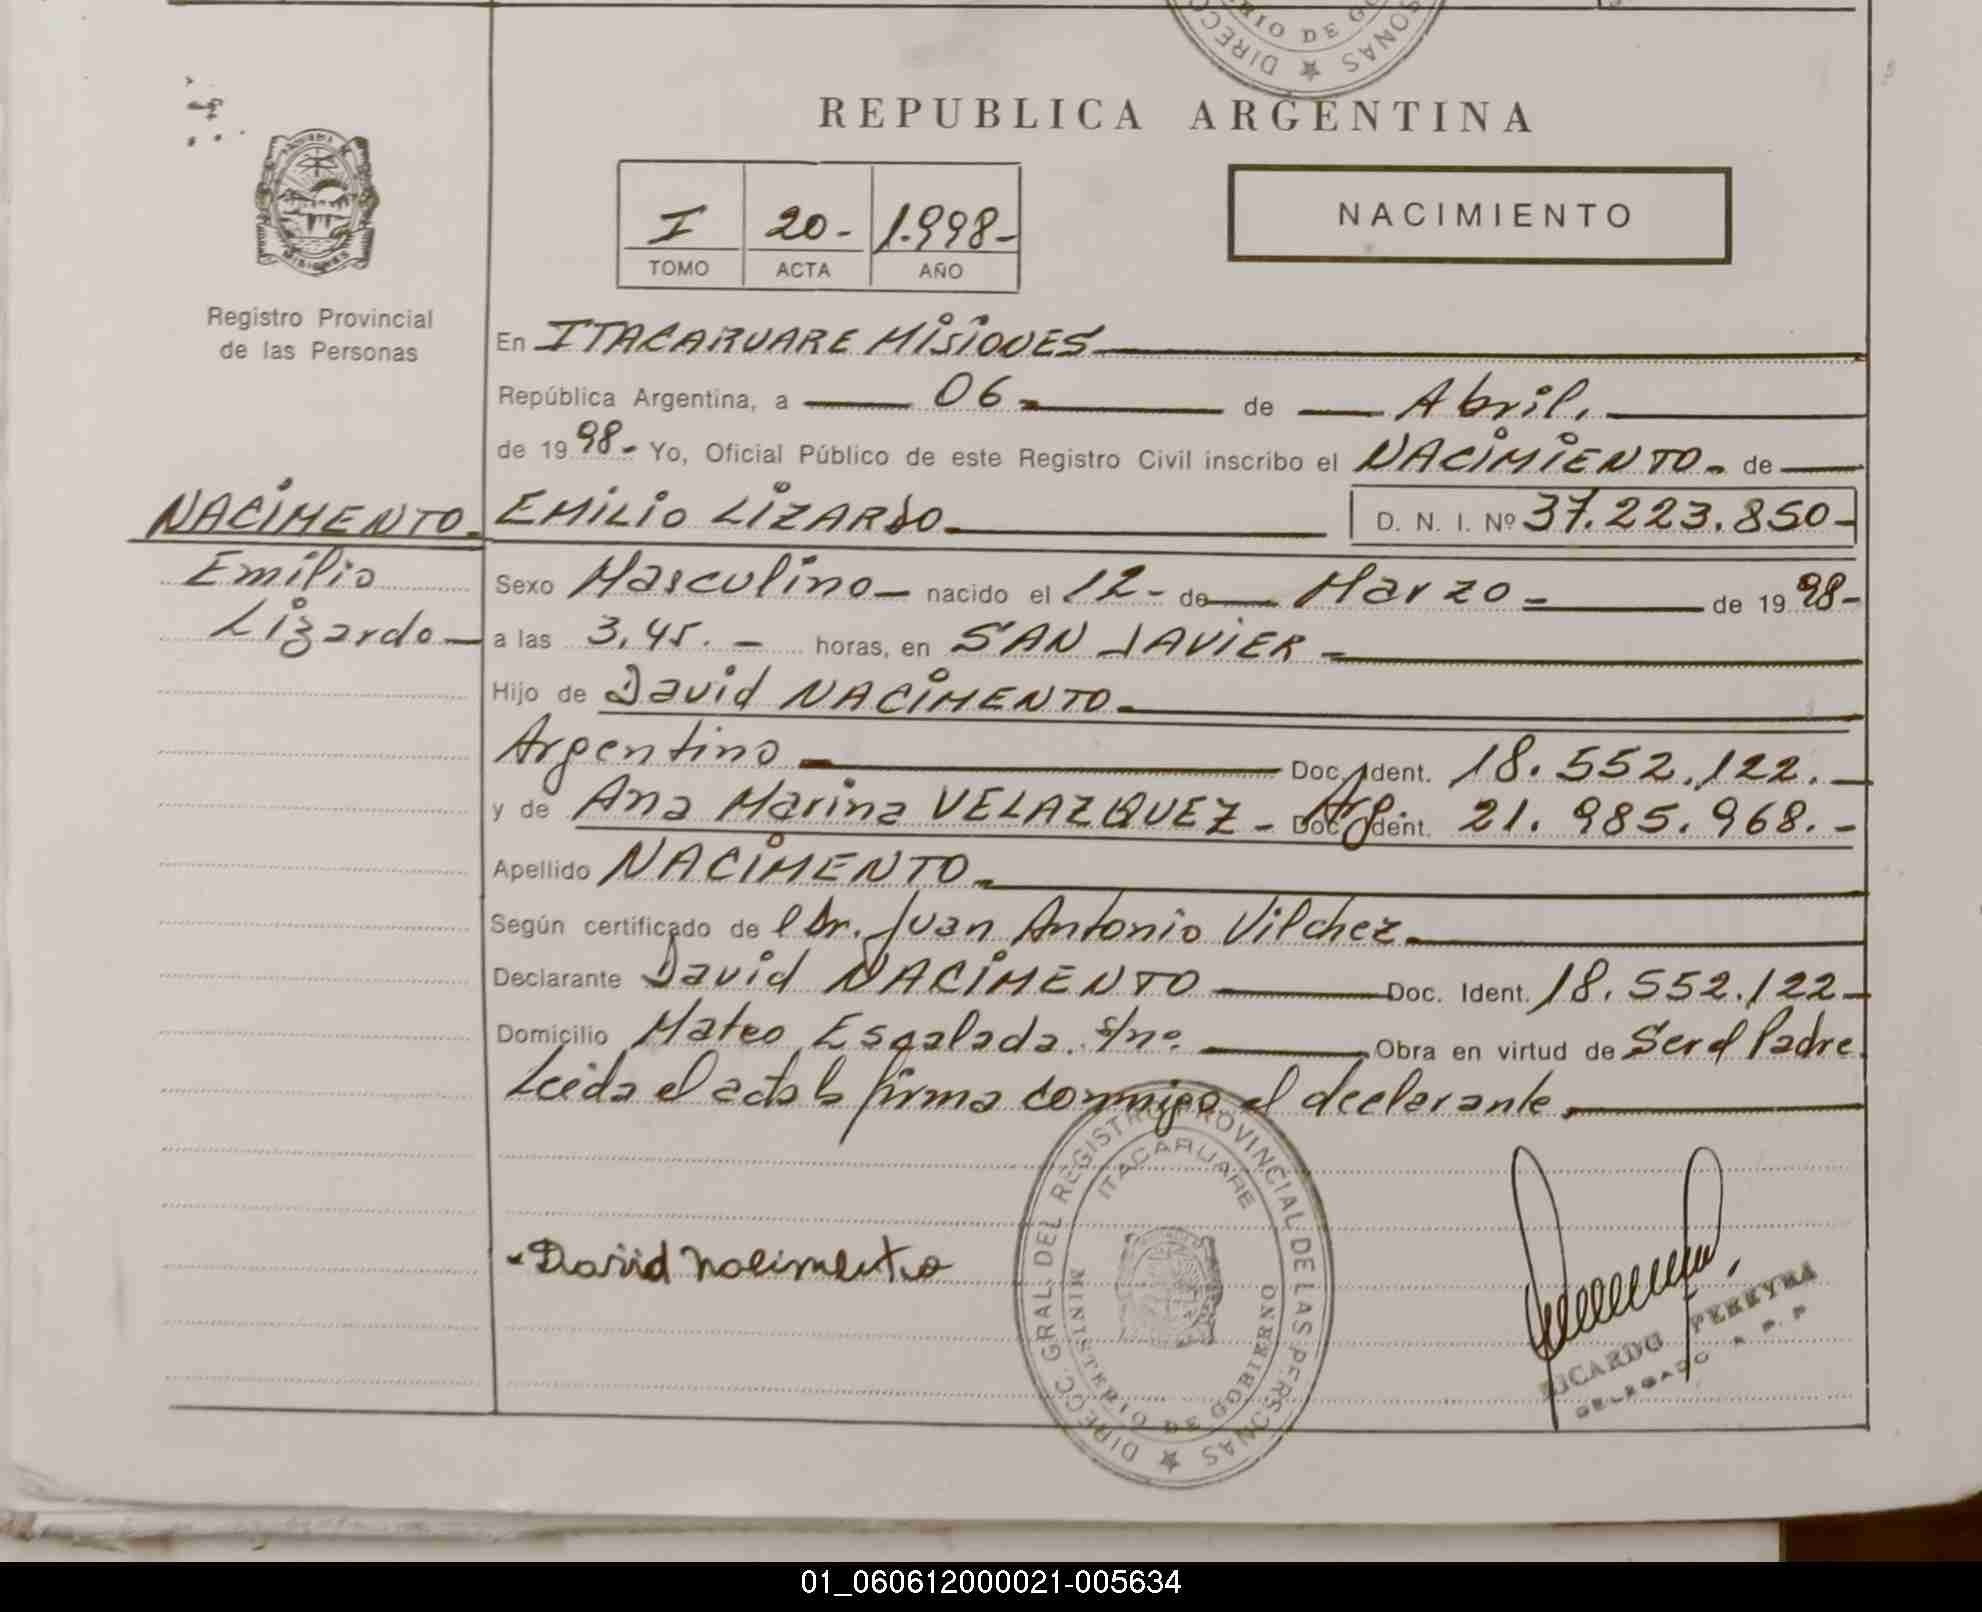 REPUBLICA ARGENTINA
I 20- 1.998-
TOMO ACTA AÑO
NACIMIENTO
MISIONES
Registro Provincial
de las Personas
En ITACARUARE MISIONES
República Argentina, a 06 de Abril.
de 1998- Yo, Oficial Público de este Registro Civil inscribo el NACIMIENTO de
NACIMENTO EMILIO LIZARDO D. N. I. Nº 37.223.850-
Emilio
Lizardo
Sexo Masculino nacido el 12- de Marzo- de 1998-
a las 3,45.- horas, en SAN JAVIER-
Hijo de David NACIMENTO
Argentino Doc. Ident. 18.552.122.-
y de Ana Marina VELAZQUEZ- Arg. Doc. Ident. 21.985.968.-
Apellido NACIMENTO
Según certificado de l Dr. Juan Antonio Vilchez
Declarante David NACIMENTO Doc. Ident. 18.552.122-
Domicilio Mateo Escalada. s/nº. Obra en virtud de Ser el Padre.
Leída el acta la firma conmigo el declarante.
DIRECC. GRAL. DEL REGISTRO PROVINCIAL DE LAS PERSONAS
ITACARUARE
MINISTERIO DE GOBIERNO
David Nacimento
RICARDO PEREYRA
DELEGADO R. P. P.
01_060612000021-005634